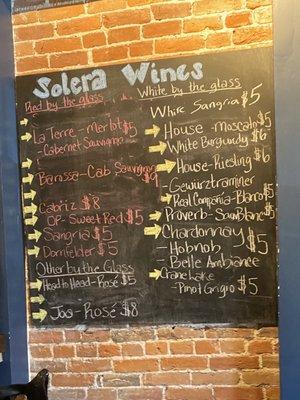 Solera Wines
Red by the glass
La Terre - Merlot $5
- Cabernet Sauvignon
Barossa - Cab Sauvignon $9
Cabriz $8
OP - Sweet Red $5
Sangria $5
Dornfelder $5
Other by the Glass
Head to Head - Rosé $5
Joa - Rosé $8
White by the glass
White Sangria $5
House - Moscato $5
White Burgundy $6
House - Riesling $6
- Gewurztraminer
Real Compania - Blanco $5
Proverb - Sauv Blanc $5
Chardonnay $5
- Hobnob
- Belle Ambiance
Crane Lake
- Pinot Grigio $5